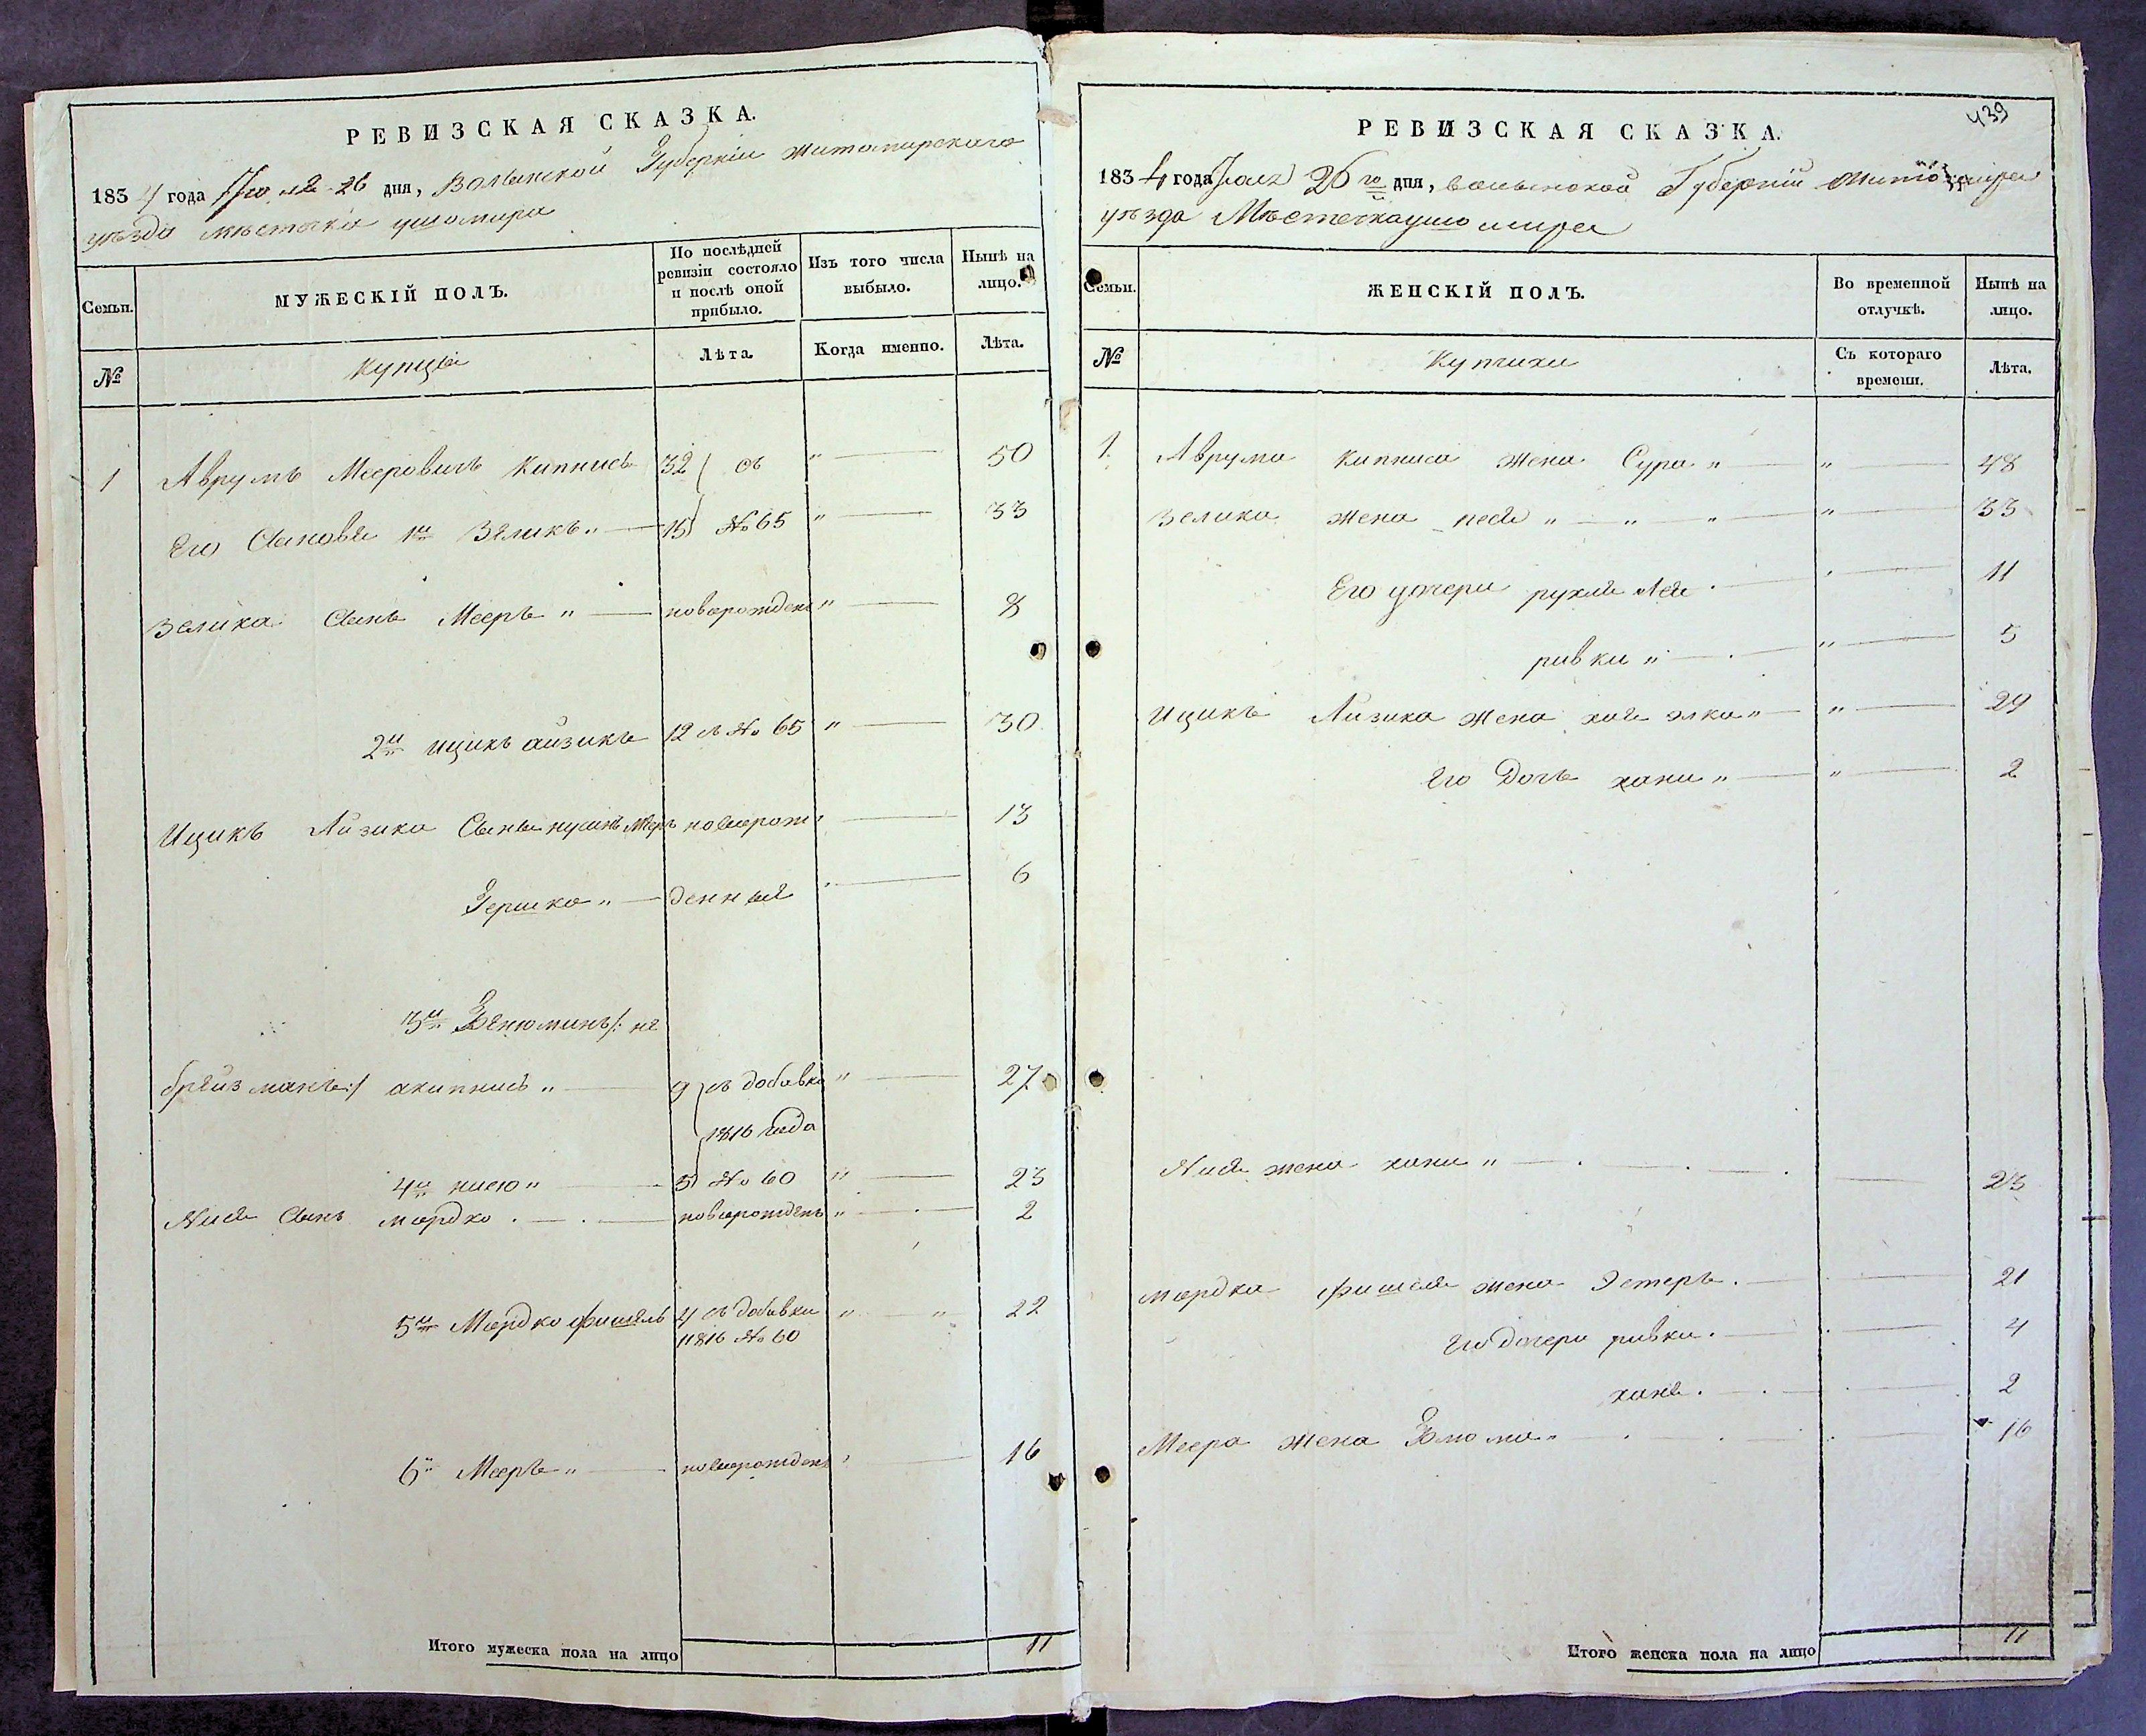 РЕВИЗСКАЯ СКАЗКА.
1834 года дня, Волынской Губерніи Житомирскаго
уѣзда мѣстечка ушомира
Семьи.
МУЖЕСКІЙ ПОЛЪ.
По послѣдней ревизіи состояло и послѣ оной прибыло.
Изъ того числа выбыло.
Нынѣ на лицо.
№
купцы
Лѣта.
Когда именно.
Лѣта.
1 Аврумъ Мееровичъ Кипнисъ 32 съ " 50
Его Сыновья 1й Зеликъ " 15 № 65 " 33
Зелика Сынъ Мееръ " новорожденъ " 8
2й ицикъ айзикъ 12 съ № 65 " 30
Ицикъ Айзика Сынъ новорож 13
Гершко " денныя 6
3й Бенюминъ /: не
брейзманъ :/ акипнисъ " 9 съ добавки " 27
1816 года
4й нисю " 5 № 60 " 23
Нися Сынъ мордко новорожденъ " 2
5й Мордко фишель 4 съ добавки " " 22
1816 № 60
6й Мееръ " новорожден 16
Итого мужеска пола на лицо 11
439
РЕВИЗСКАЯ СКАЗКА.
1834 года 26го дня, волынской Губерніи Житомира
уѣзда Мѣстечка ушомира
Семьи.
ЖЕНСКІЙ ПОЛЪ.
Во временной отлучкѣ.
Нынѣ на лицо.
№
Купчихи
Съ котораго времени.
Лѣта.
1. Аврума кипниса жена Сура " " 48
Зелика жена песя " " " " 33
Его дочери рухля лея 11
ривка " " 5
Ицикъ Айзика жена хая элка " " 29
Его Дочь хана " " 2
Нися жена хана " 23
мордка фишеля жена Эстеръ 21
Его дочери ривка 4
хана 2
Меера жена 16
Итого женска пола на лицо 11